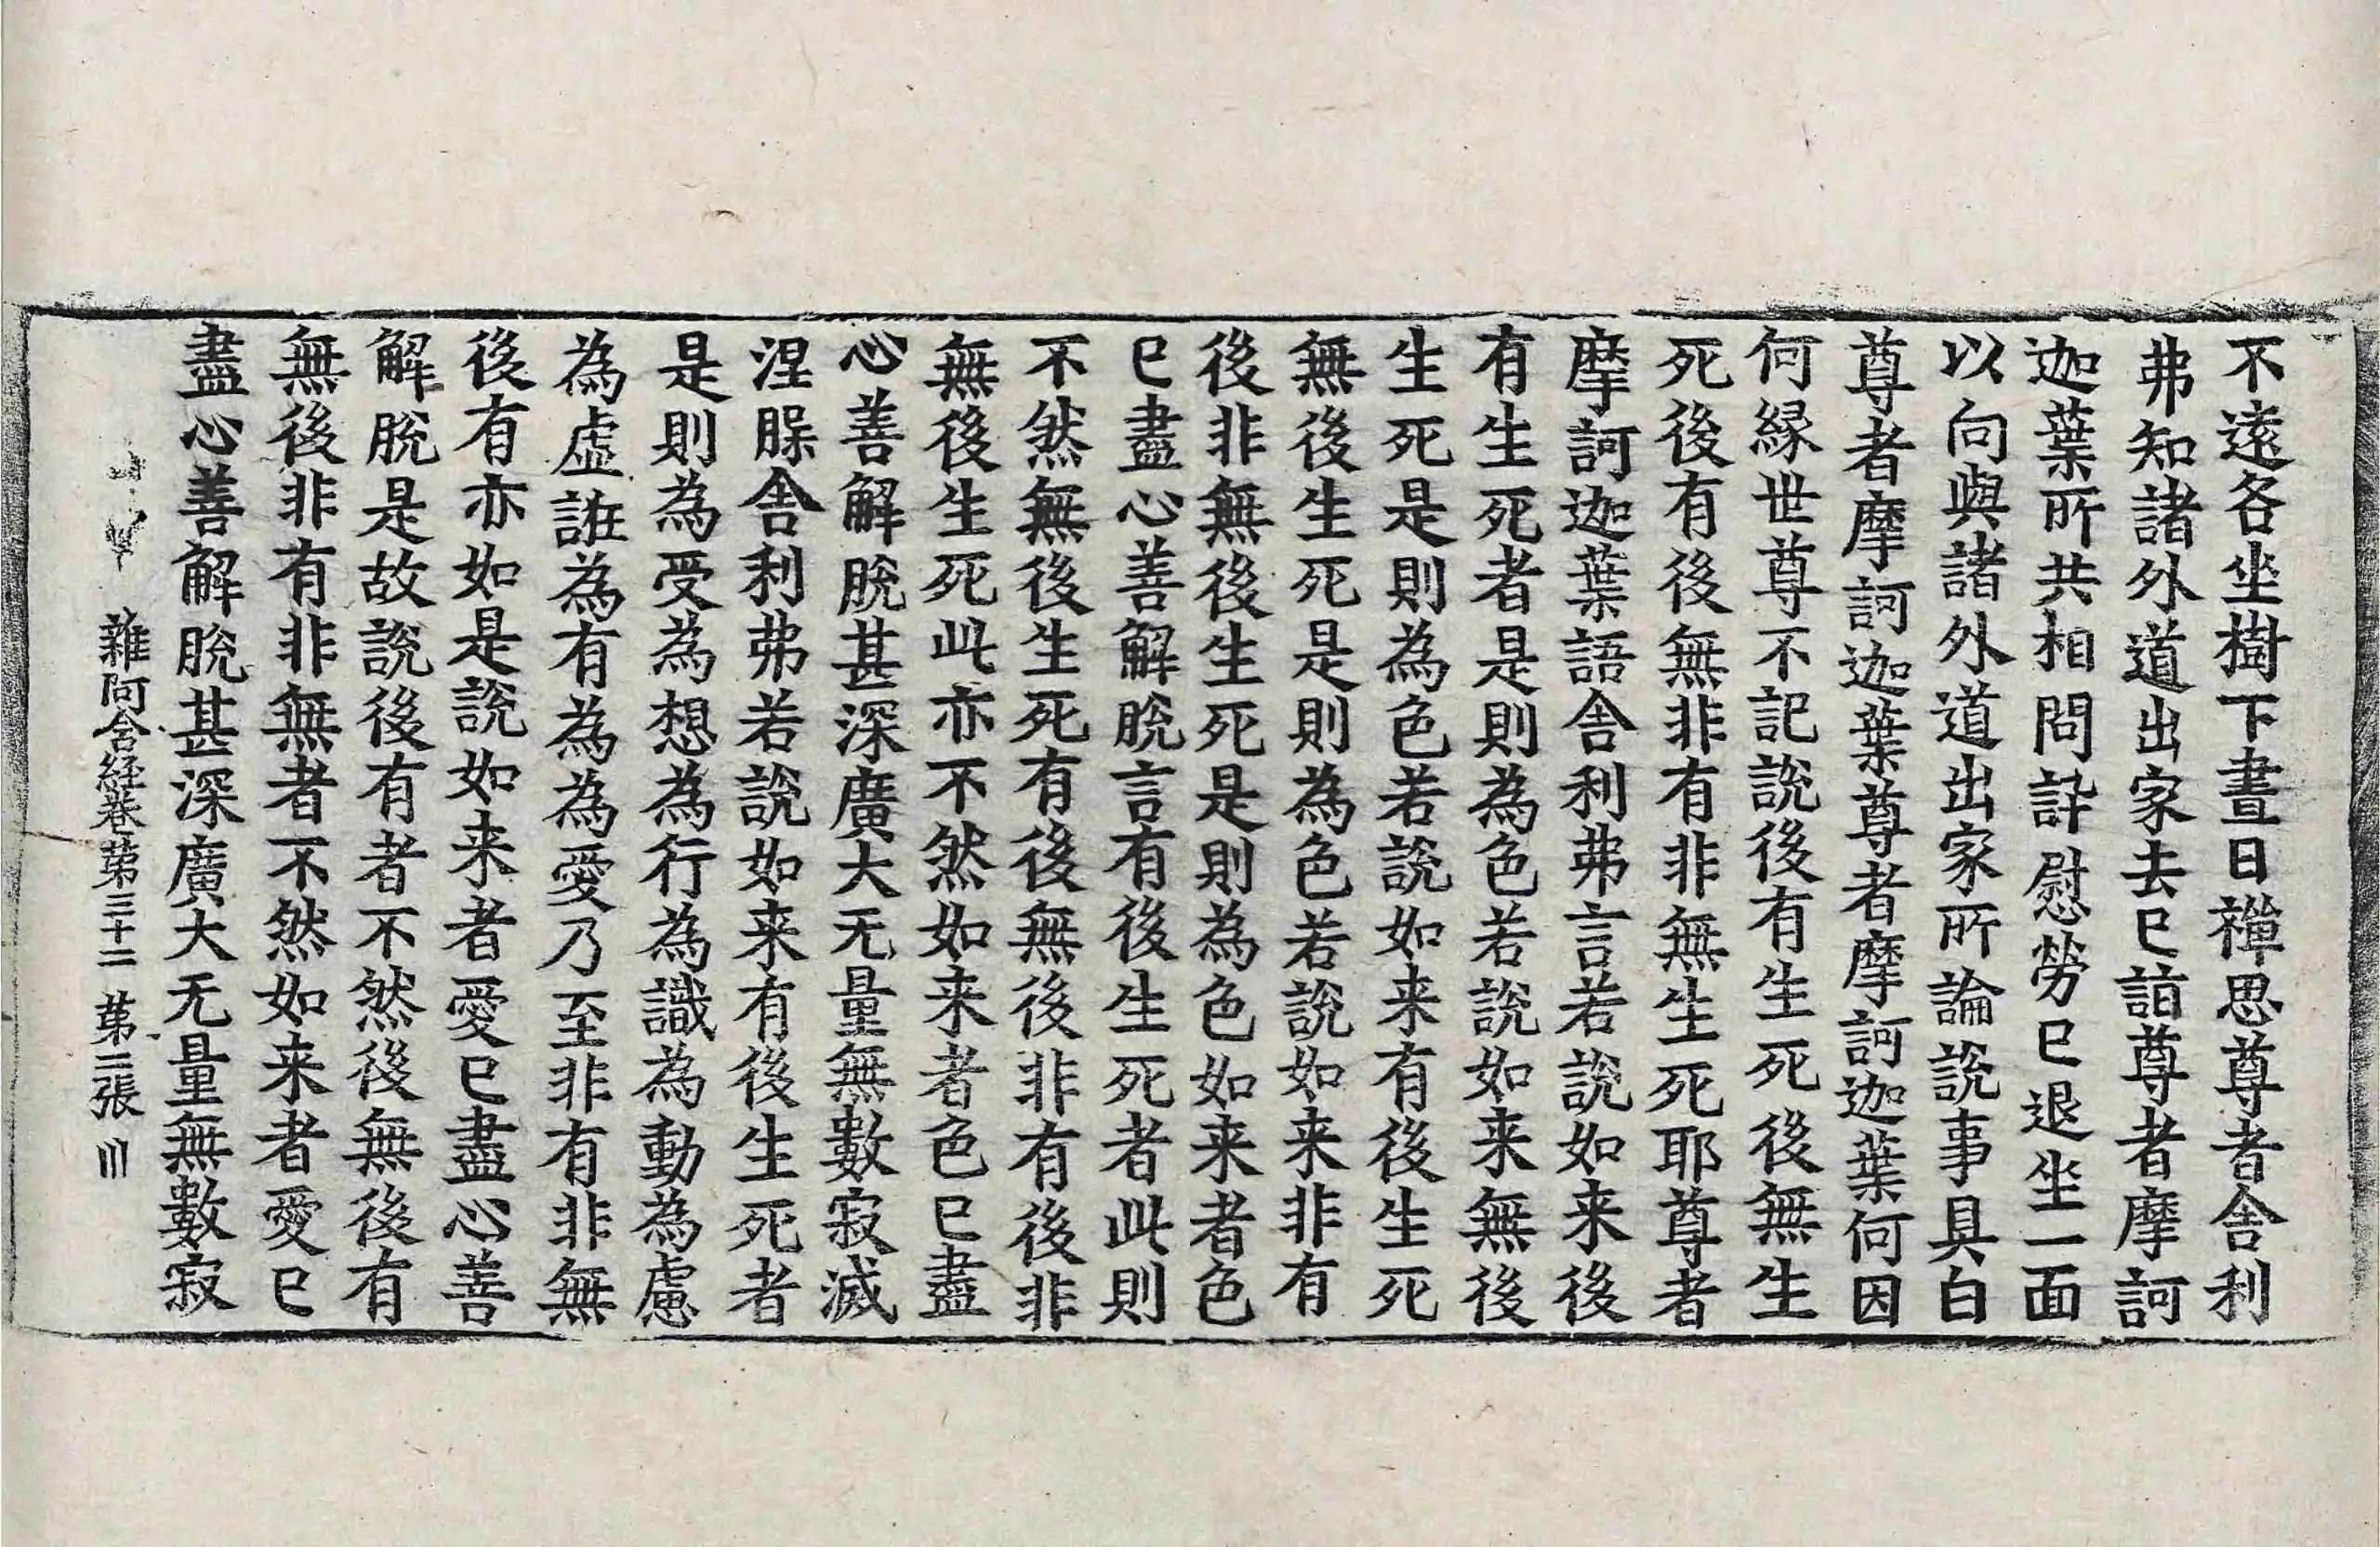 不遠各坐樹下晝日禪思尊者舎利
弗知諸外道出家去已詣尊者摩訶
迦葉所共相問訊慰勞已退坐一面
以向與諸外道出家所論說事具白
尊者摩訶迦葉尊者摩訶迦葉何因
何縁世尊不記說後有生死後無生
死後有後無非有非無生死耶尊者
摩訶迦葉語舎利弗言若說如来後
有生死者是則為色若說如来無後
生死是則為色若說如来有後生死
無後生死是則為色若說如来非有
後非無後生死是則為色如来者色
已盡心善解脫言有後生死者此則
不然無後生死有後無後非有後非
無後生死此亦不然如来者色已盡
心善解脫甚深廣大无量無數寂滅
涅槃舎利弗若說如来有後生死者
是則為受為想為行為識為動為慮
為虛誑為有為為愛乃至非有非無
後有亦如是說如来者愛已盡心善
解脫是故說後有者不然後無後有
無後非有非無者不然如来者愛已
盡心善解脫甚深廣大无量無數寂
雜阿含経巻第三十二 第二張 川